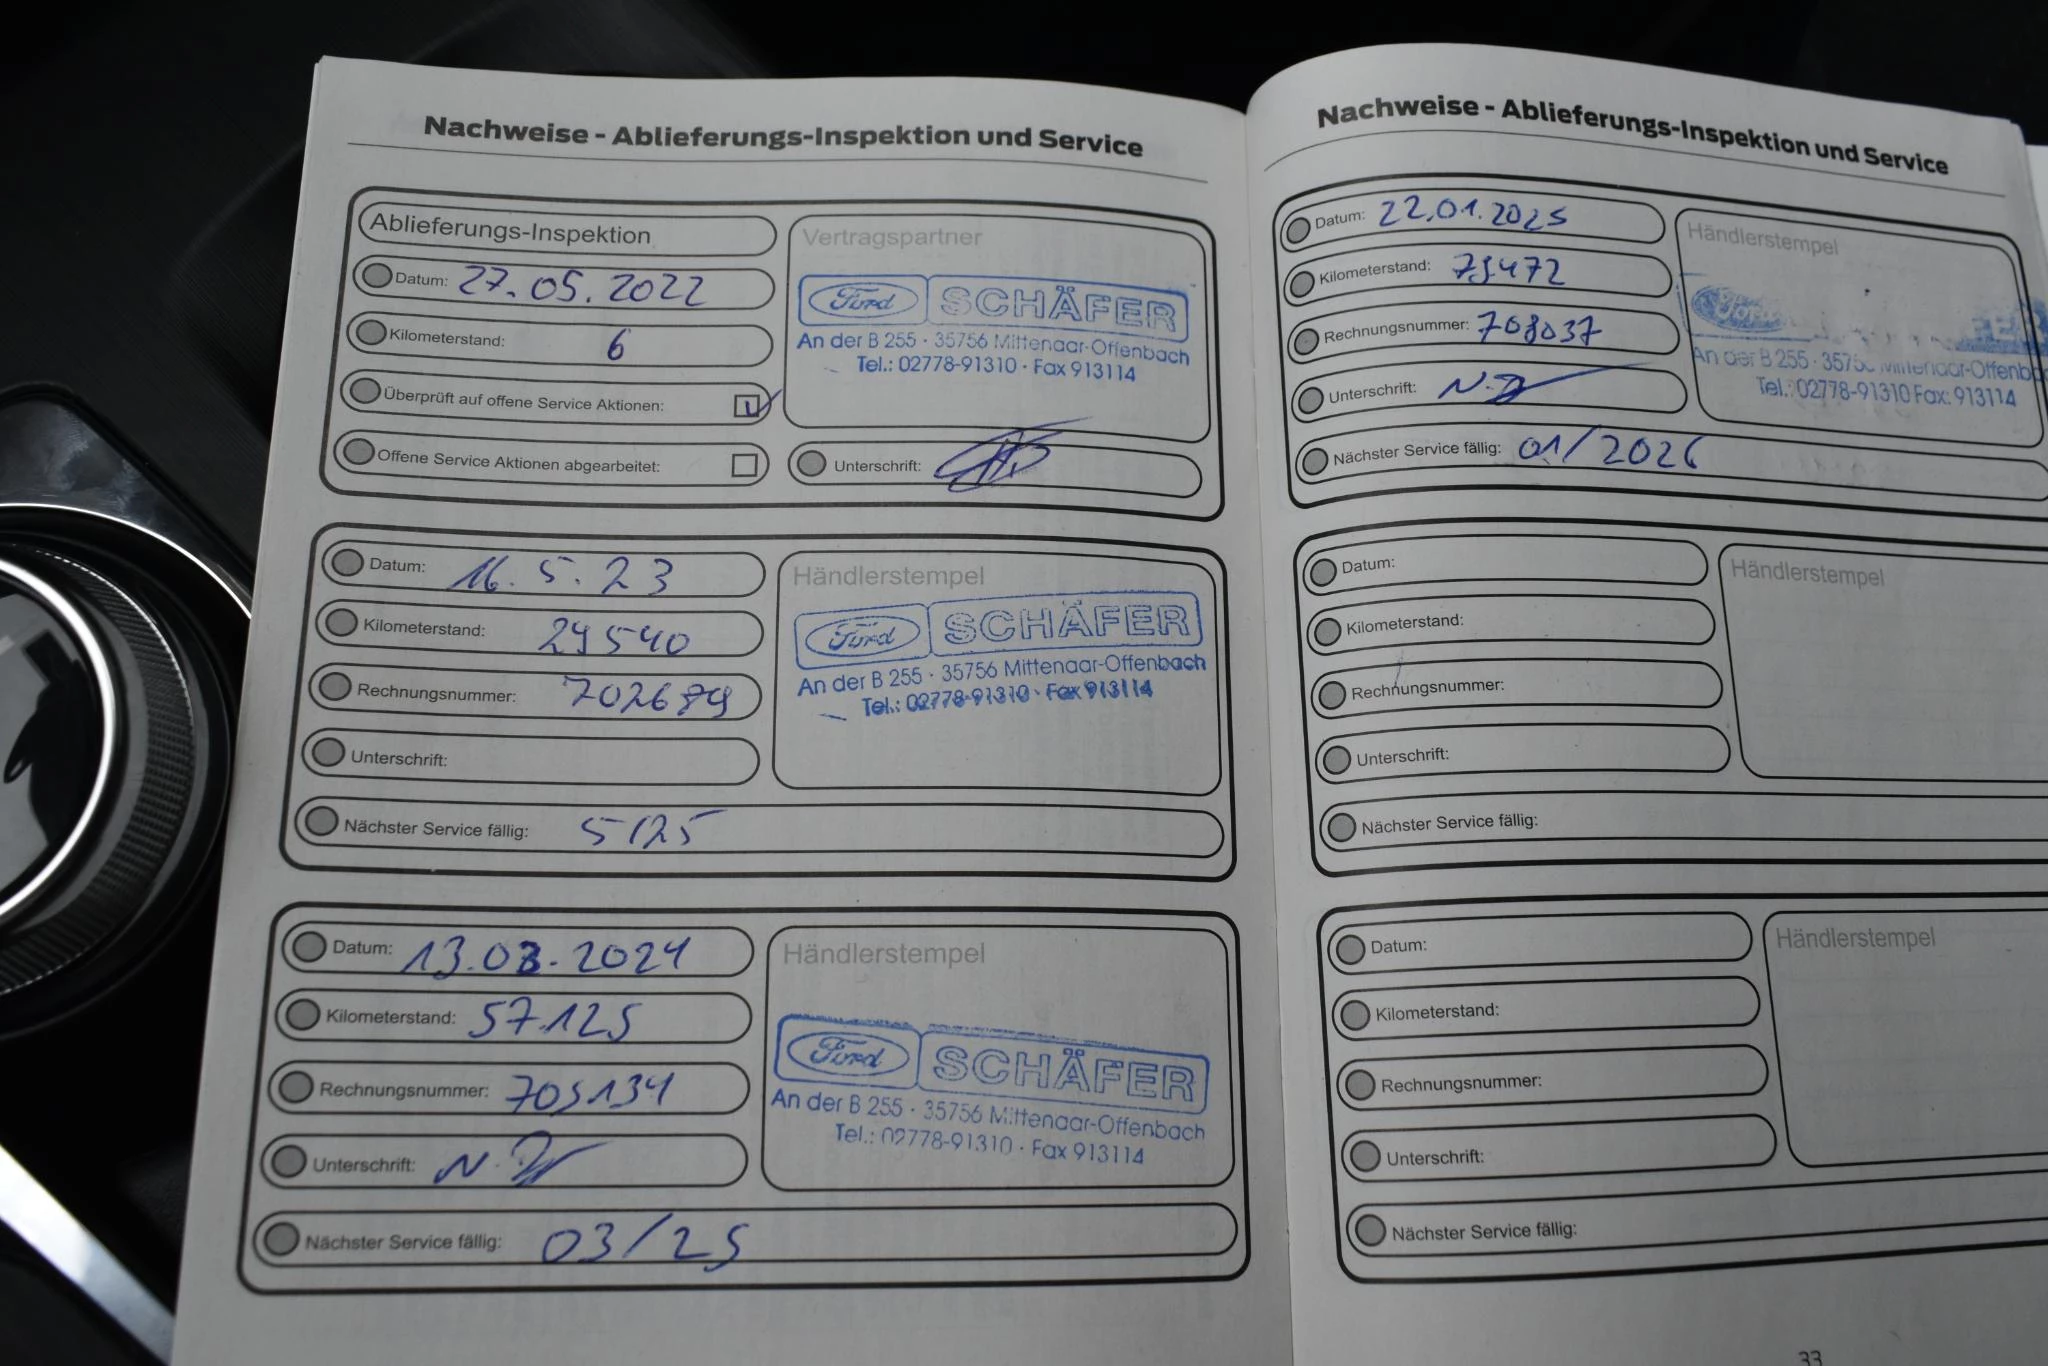 Nachweise - Ablieferungs-Inspektion und Service
Ablieferungs-Inspektion
Datum: 27.05.2022
Kilometerstand: 6
Überprüft auf offene Service Aktionen:
Offene Service Aktionen abgearbeitet:
Vertragspartner
Ford SCHÄFER
An der B 255 · 35756 Mittenaar-Offenbach
Tel.: 02778-91310 · Fax 913114
Unterschrift:
Datum: 16.5.23
Kilometerstand: 29540
Rechnungsnummer: 702679
Unterschrift:
Nächster Service fällig: 5/25
Händlerstempel
Ford SCHÄFER
An der B 255 · 35756 Mittenaar-Offenbach
Tel.: 02778-91310 · Fax 913114
Datum: 13.03.2024
Kilometerstand: 57.125
Rechnungsnummer: 705134
Unterschrift:
Nächster Service fällig: 03/25
Händlerstempel
Ford SCHÄFER
An der B 255 · 35756 Mittenaar-Offenbach
Tel.: 02778-91310 · Fax 913114
Nachweise - Ablieferungs-Inspektion und Service
Datum: 22.01.2025
Kilometerstand: 79472
Rechnungsnummer: 708037
Unterschrift:
Nächster Service fällig: 01/2026
Händlerstempel
Ford
An der B 255 · Mittenaar-Offenb
Tel.: 02778-91310 Fax: 913114
Datum:
Kilometerstand:
Rechnungsnummer:
Unterschrift:
Nächster Service fällig:
Händlerstempel
Datum:
Kilometerstand:
Rechnungsnummer:
Unterschrift:
Nächster Service fällig:
Händlerstempel
33